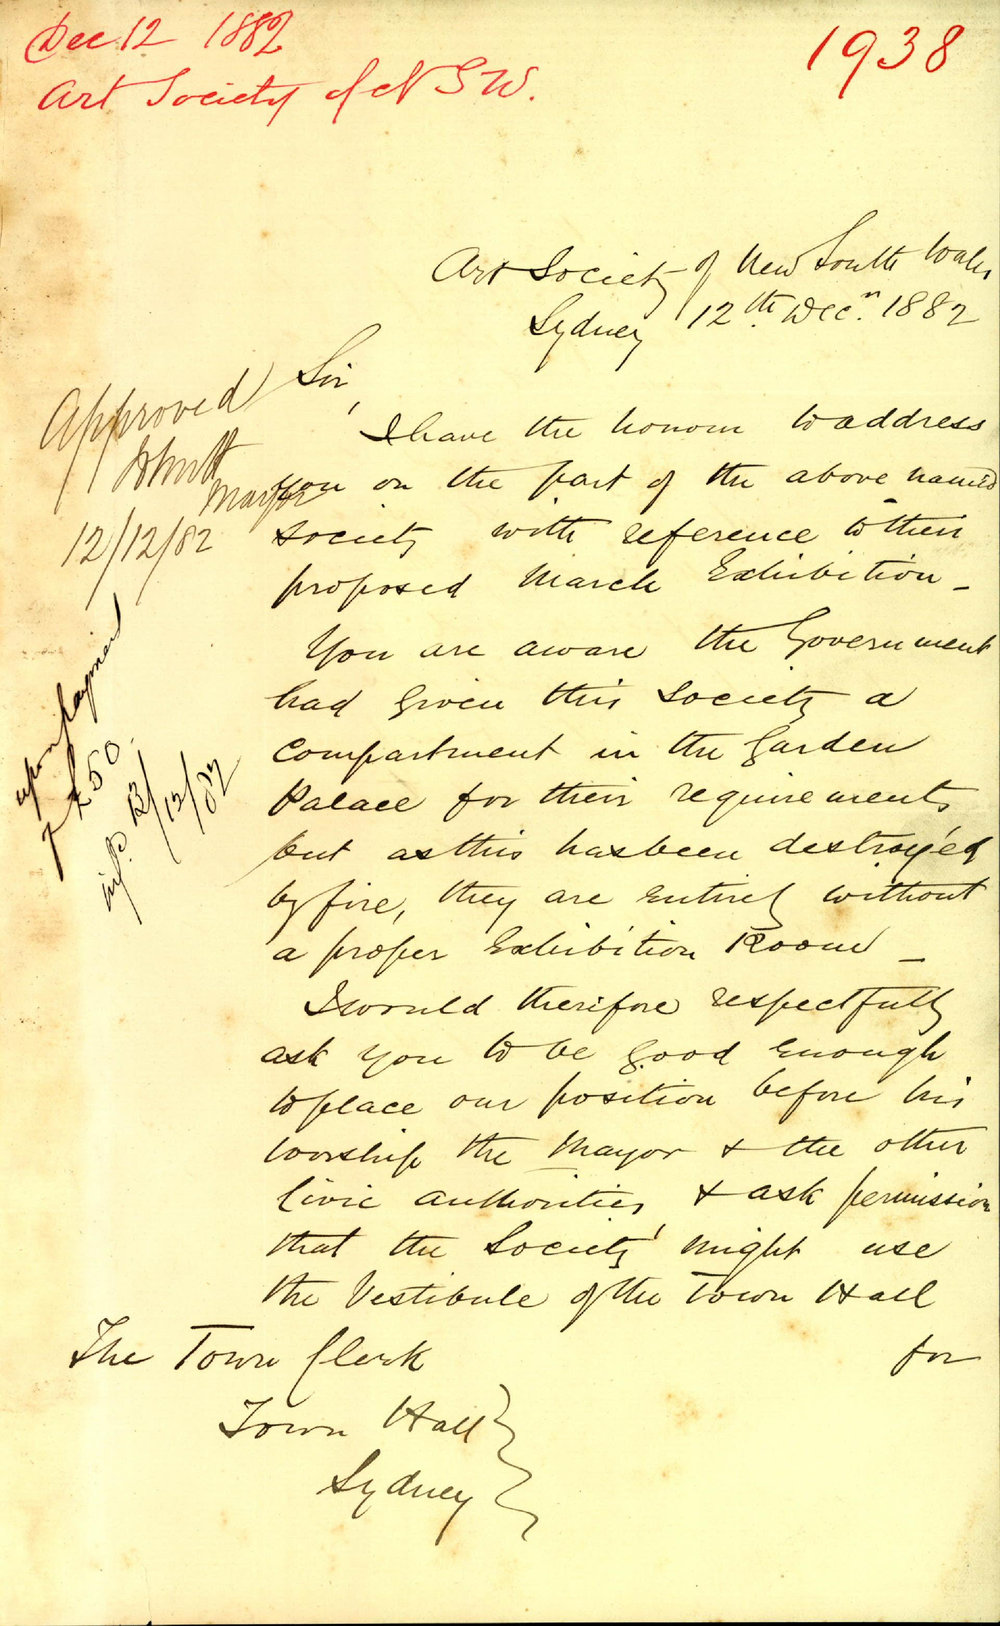 Dec 12 1882
Art Society of N S W.
1938
Art Society of New South Wales
Sydney 12th Decr. 1882
Sir,
Approved
Mayor
12/12/82
upon payment
of £50.
13/12/82
I have the honour to address
you on the part of the above named
Society with reference to their
proposed March Exhibition _
You are aware the Government
had given this Society a
compartment in the Garden
Palace for their requirements
but as this has been destroyed
by fire, they are entirely without
a proper Exhibition Room _
I would therefore respectfully
ask you to be good enough
to place our position before his
worship the Mayor & the other
Civic authorities & ask permission
that the Society might use
the Vestibule of the Town Hall
for
The Town Clerk
Town Hall
Sydney